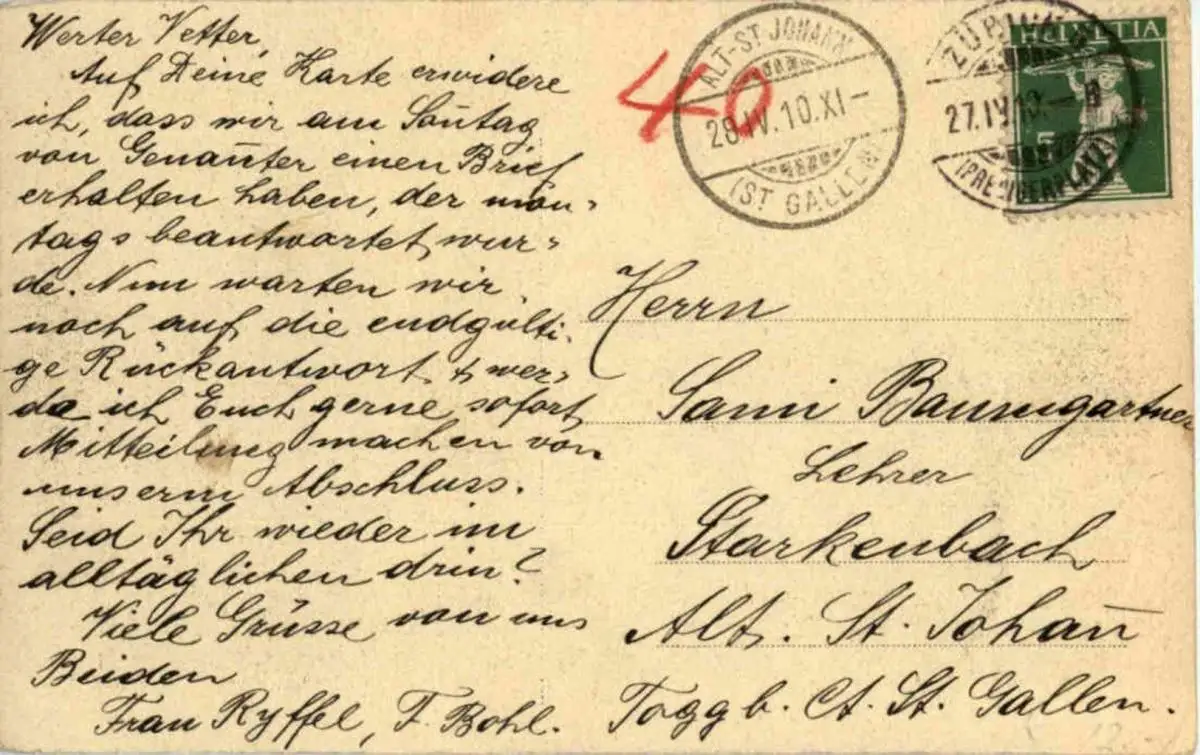 Werter Vetter,
Auf Deine Karte erwidere
ich, dass wir am Soñtag
von Genañter einen Brief
erhalten haben, der mon=
tags beantwortet wur=
de. Nun warten wir
noch auf die endgülti-
ge Rückantwort & wer=
de ich Euch gerne sofort
Mitteilung machen von
unserm Abschluss.
Seid Ihr wieder im
alltäglichen drin?
Viele Grüsse von uns
Beiden
Frau Ryffel, F. Bohl.
40
ALT-ST JOHANN
28.IV.10.XI-
(ST GALLEN)
ZÜRICH
27.IV.10.
(PREDIGERPLATZ)
HELVETIA
5
Herrn
Sami Baumgartner
Lehrer
Starkenbach
Alt. St. Johañ
Toggb. Ct. St. Gallen.